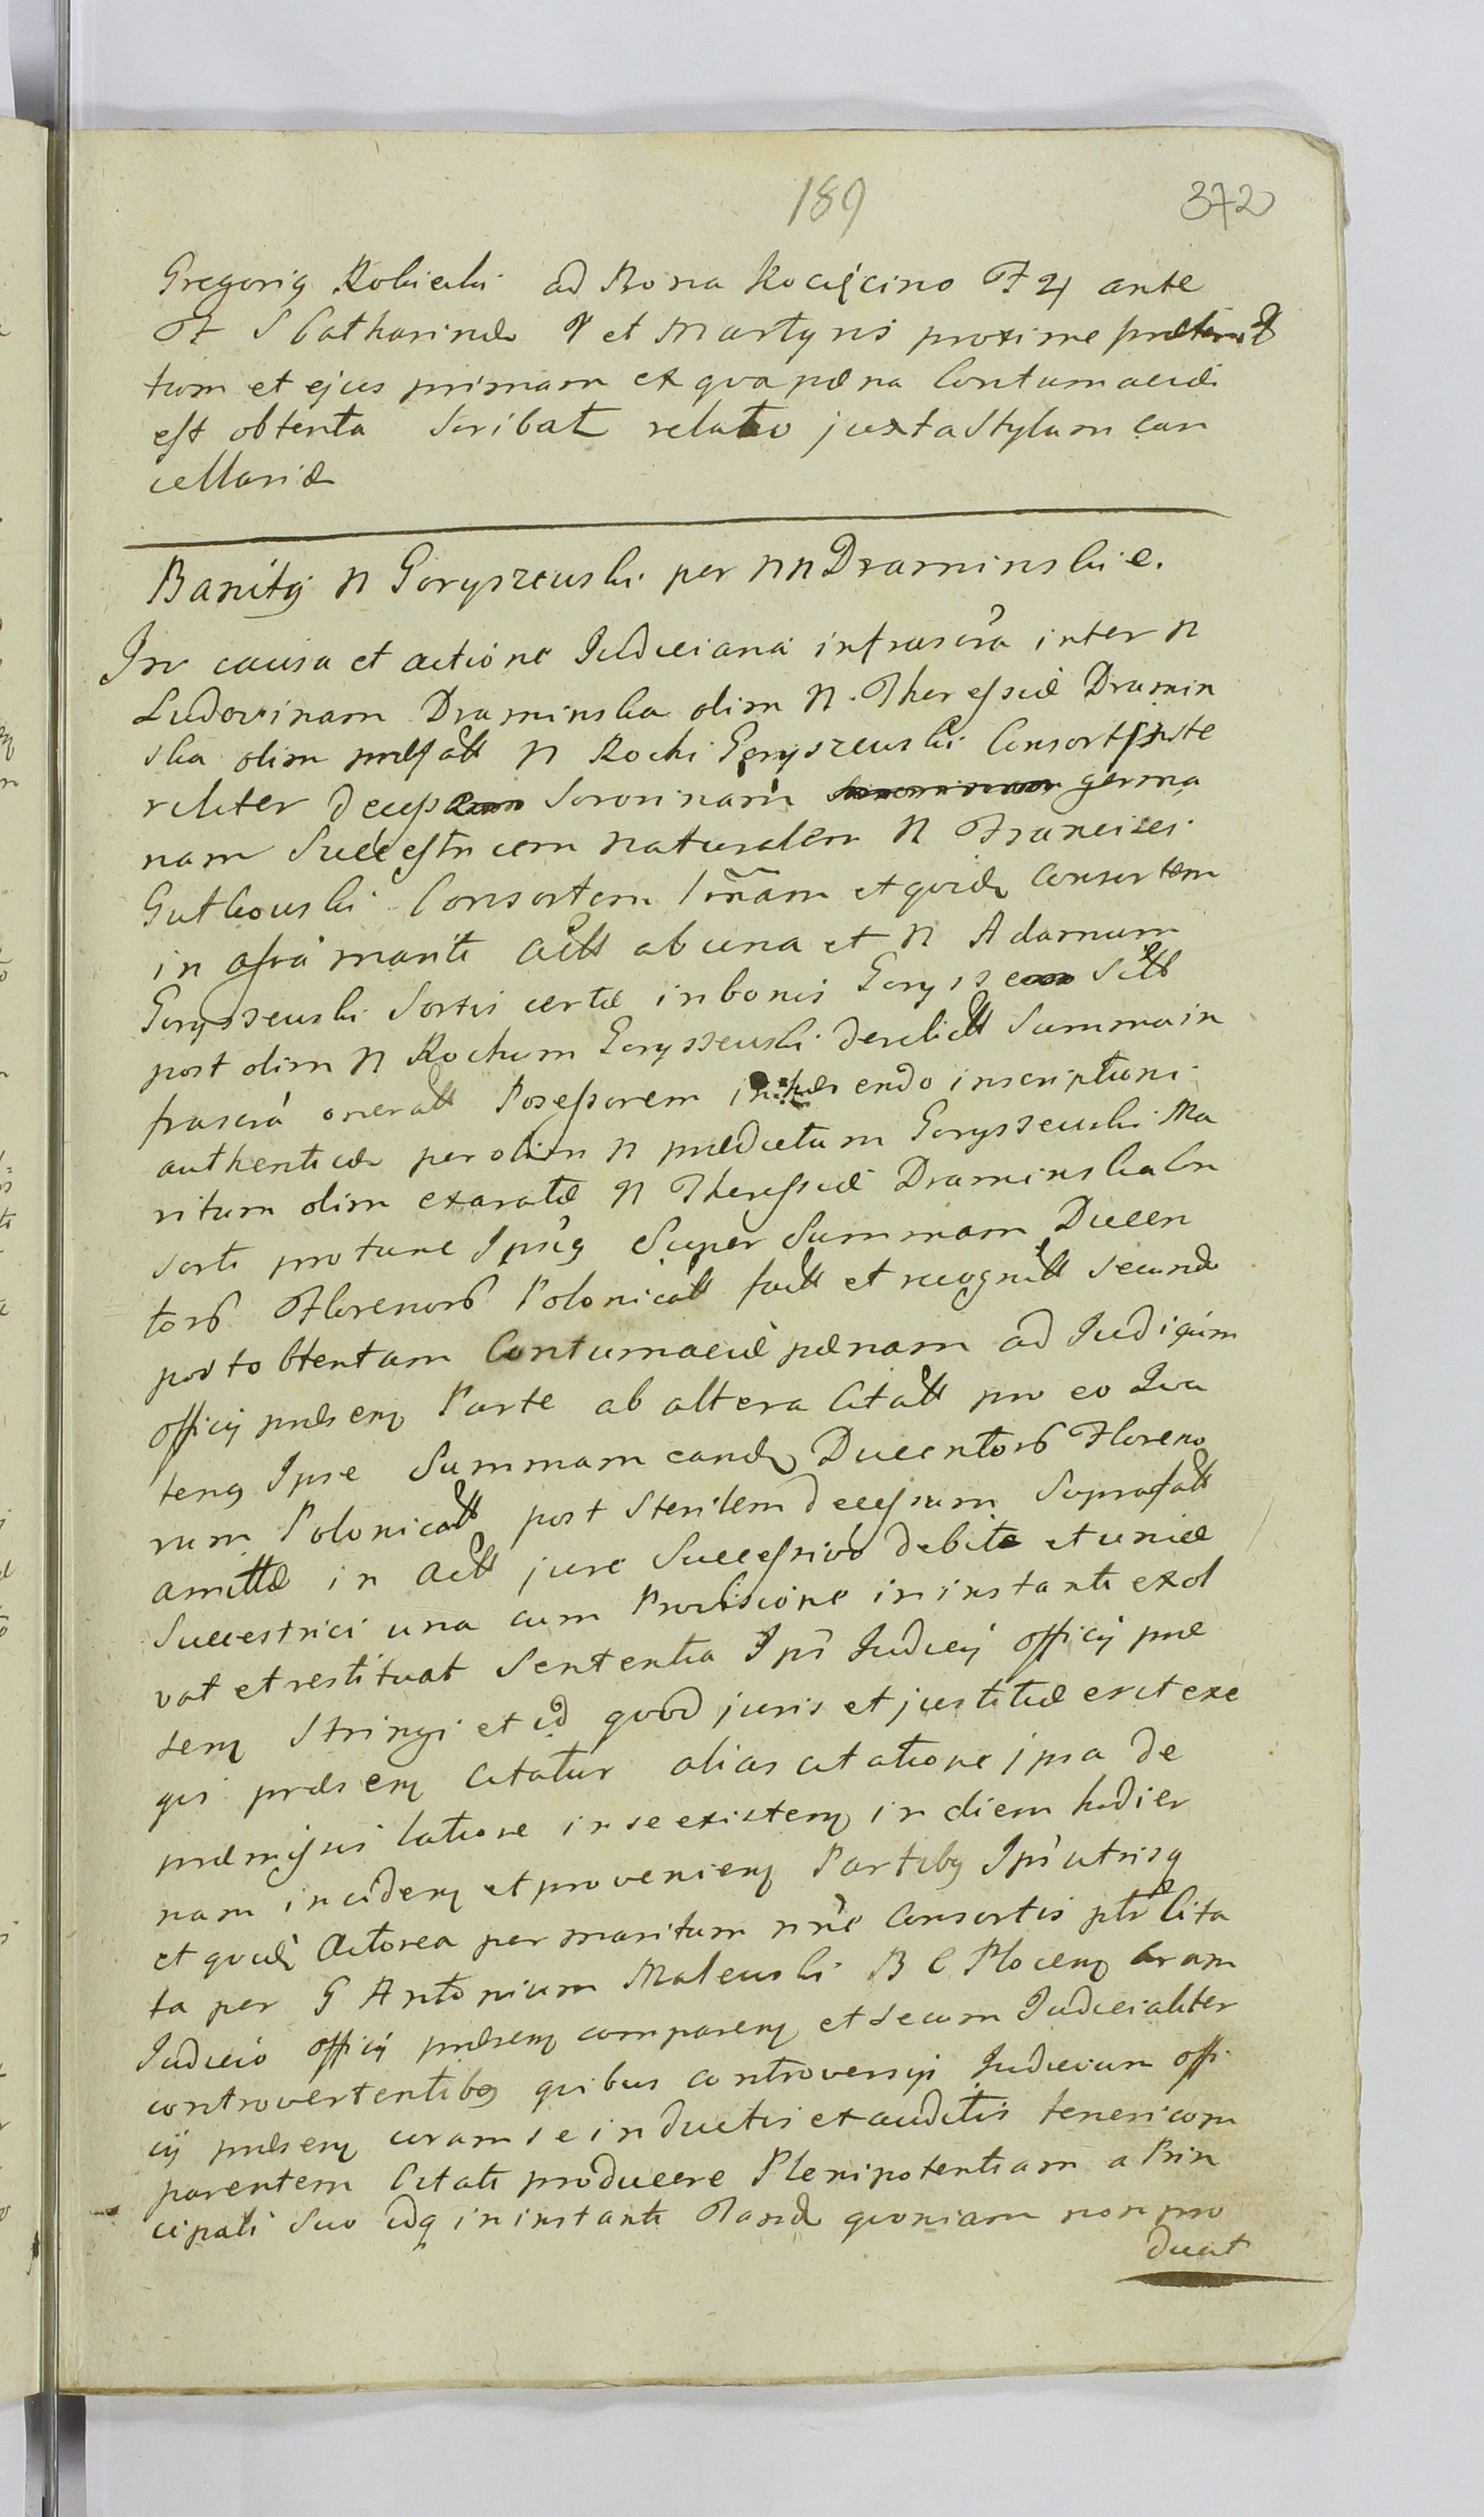 189
372
Gregorig Robierbi ad Bona Kocięcino F 4 ante
F S Catharinæ V et Martyris proxime præteri
tum et ejus primam ex qva pæna Contumaciæ
est obtenta Scribat relatio juxta Stylum can
cellariæ
Banitg N Goryszewski per NN Draminskie.
In causa et actione Judiciaria infrascra inter N
Ludovinam Draminska olim N. Theressiæ Dramin
ska olim præfatt N Rochi Goryszewski Consort Ste
riliter decess Sororinam germa
nam Succestricem naturalem N Francisci
Gutkowski Consortem lmam et qvidē Consortem
in assra mariti actt ab una et N Adamum
Goryszewski Sortis certæ in bonis Gorysze Sitt
post olim N Rochum Goryszewski derelictt Summa in
frascra oneratt Possessorem inhærendo inscriptioni
authenticæ per olim N prædictum Goryszewski Ma
ritum olim exaratæ N Theressiæ Draminska Con
sorti pro tunc Ipsig Super Summam Ducen
tor Florenor Polonicatt factt et recognitt secundo
post obtentam Contumaciæ pænam ad Judicium
officii præsenq Parte ab altera Citatt pro eo Qva
tenq Ipse Summam eandē Ducentor Floreno
rum Polonicatt post Sterilem decessum Suprafatt
amittæ in actt jure Successivo debite et unicæ
Succestrici una cum Provisione in instanti exol
vat et restituat Sententia Ipsi Judicij officij præ
senq Stringi et id qvod juris et justitiæ erit exe
qvi præsenq Citatur alias citatione ipsa de
præmissis latiore in se existenq in diem hodier
nam incidenq et provenienq Partibq Ipsi utrisq
et qvidē Actorea per maritum nne Consortis ptr Cita
ta per G Antonium Malewski B C Plocenq Coram
Judicio officij præsenq comparenq et secum Judicialiter
controvertentibq qvibus controversijs Judicium offi
cij præsenq coram se inductis exauditis teneri com
parentem Citati producere Plenipotentiam a Prin
cipali Suo idq in instanti Tandē qvoniam non pro
ducit